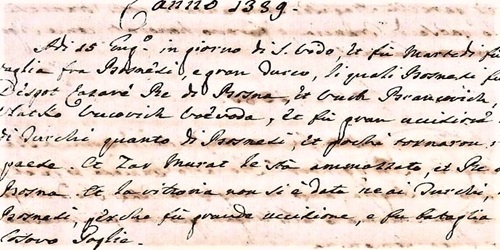 anno 1389.
Adi 15 Eug.º in giorno di S. Vodo, Et fù Martedi fù
taglia fra Bosnesi, e gran Turco, li quali Bosnesi fu
Despot Lazaré Re di Bosna, et Vuch Brancovich
Vlacko Vucovich Voevoda, Et fù gran uccisione
di Turchi quanto di Bosnesi, et pochi tornarono
paese. Et Zar Murat le stà ammazzato, et Re
Bosna. Et la vittoria non si è data ne ai Turchi,
Bosnesi, perche fù grande uccisione, e fù bataglia
Cosovo Poglie.